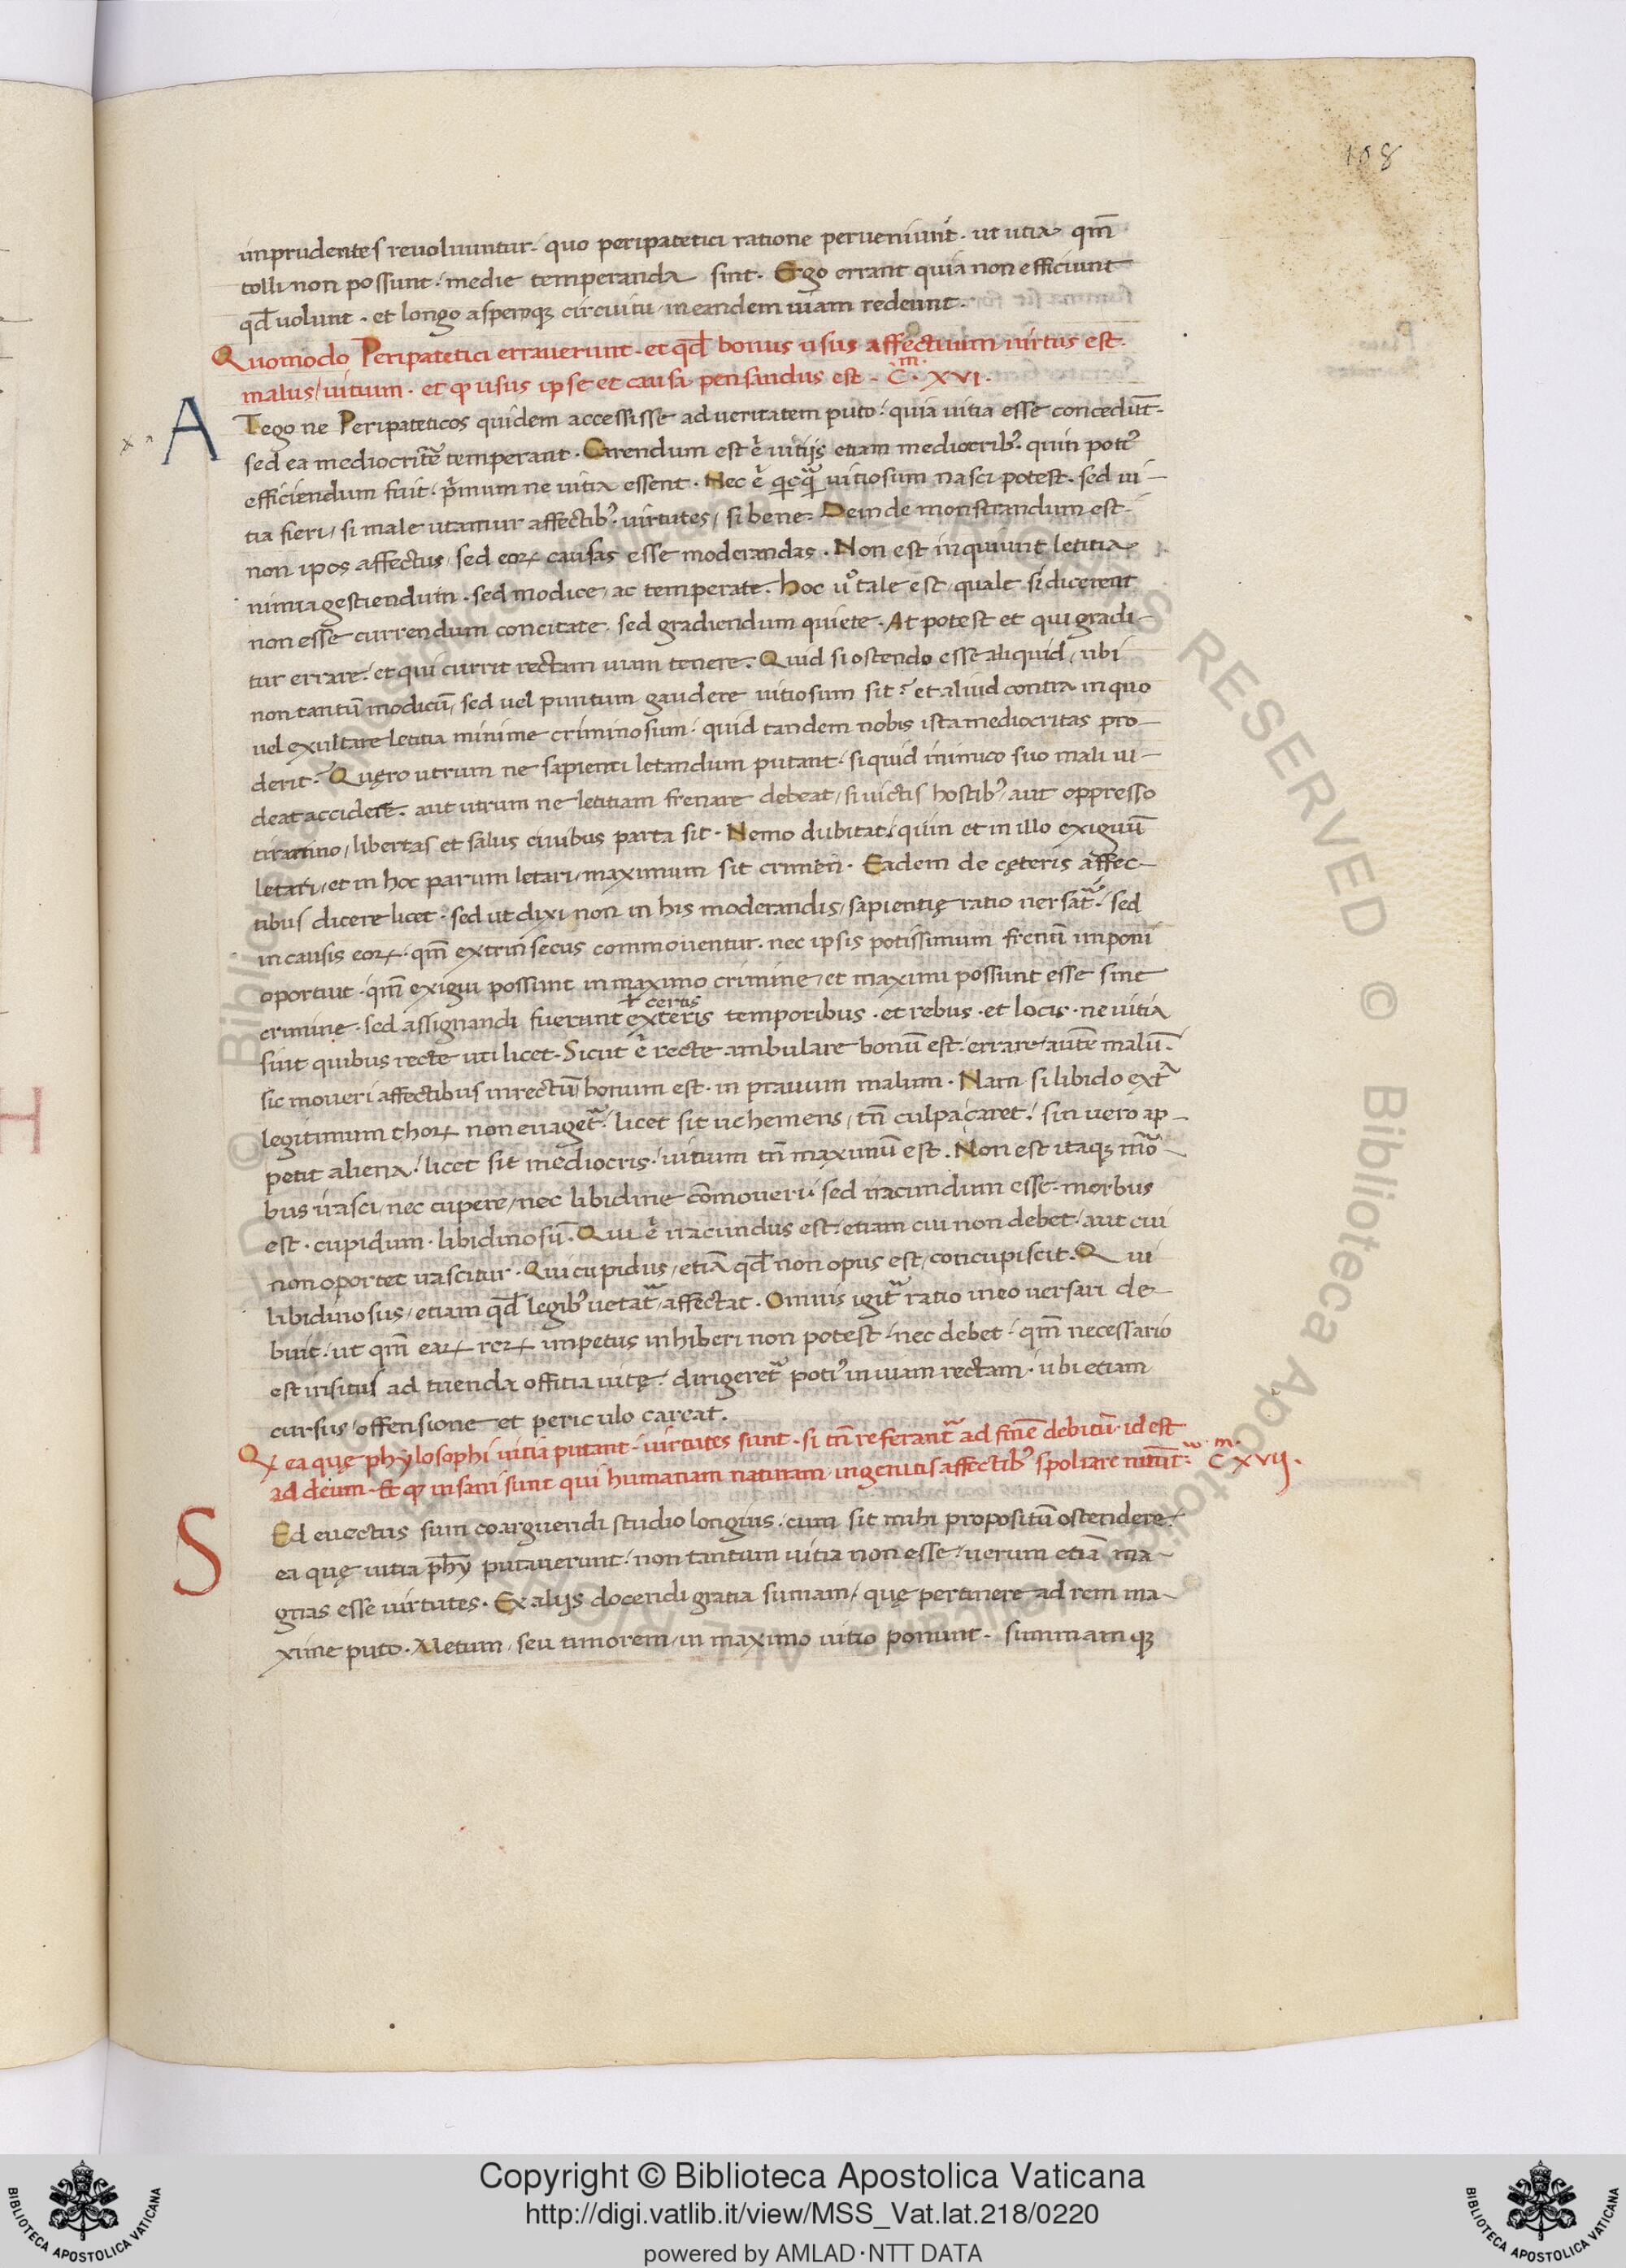 108
imprudentes reuoluuntur. quo peripatetici ratione perueniunt̄. ut uitia qm̄
tolli non possunt. medie temperanda sint. Ergo errant quia non efficiunt
qđ uolunt. et longo asperoq; circuitu, in eandem uiam redeunt.
Quomodo Peripatetici errauerunt. et qđ bonus usus affectuum uirtus est.
malus, uitium. et ꝙ usus ipse et causa pensandus est. C.m XVI.
A Tego ne Peripateticos quidem accessisse ad ueritatem puto. quia uitia esse concedūt.
sed ea mediocrit̄ temperant. Carendum est .n. uitijs etiam mediocrib;. quin poti9
efficiendum fuit. p̄mum ne uitia essent. Nec .n. q̇cq̃ uitiosum nasci potest. sed ui-
tia fieri, si male utamur affectib;. uirtutes, si bene. Deinde monstrandum est.
non ip̄os affectus, sed eoꝝ causas esse moderandas. Non est inquiunt letitia
nimia gestiendum. sed modice, ac temperate. Hoc u̇o tale est, quale si dicerent
non esse currendum concitate. sed gradiendum quiete. At potest et qui gradi-
tur errare. et qui currit rectam uiam tenere. Quid si ostendo esse aliquid, ubi
non tantū modicū, sed uel puntum gaudere uitiosum sit? et aliud contra in quo
uel exultare letitia minime criminosum. quid tandem nobis ista mediocritas pro-
derit? Quęro utrum ne sapienti letandum putant. si quid inimico suo mali ui-
deat accidere. aut utrum ne letitiam frenare debeat, si uictis hostib;, aut oppresso
tiranno, libertas et salus ciuibus parta sit. Nemo dubitat, quin et in illo exiguū
letari, et in hoc parum letari, maximum sit crimen. Eadem de cęteris affec-
tibus dicere licet. sed ut dixi non in his moderandis, sapientię ratio uersat̃. sed
in causis eoꝝ. qm̄ extrinsecus commouentur. nec ipsis potissimum frenū imponi
oportuit. qm̄ exigui possunt in maximo crimine, et maximi possunt esse sine
ł certis
crimine. sed assignandi fuerunt exteris temporibus. et rebus. et locis. ne uitia
sint quibus recte uti licet. Sicut .n. recte ambulare bonū est. errare, autē malū.
sic moueri affectibus in rectū bonum est. in prauum malum. Nam si libido ext̃
legitimum thoꝝ non euaget̃. licet sit uehemens, tn̄ culpa caret. sin uero ap-
petit aliena. licet sit mediocris. uitium tn̄ maximū est. Non est itaq; mor-
bus irasci, nec cupere, nec libidine cōmoueri. sed iracundum esse morbus
est. cupidum. libidinosū. Qui .n. iracundus est. etiam cui non debet. aut cui
non oportet irascitur. Qui cupidus, etiā qđ non opus est, concupiscit. Qui
libidinosus, etiam qđ legib; uetat̃, affectat. Omnis igit̃ ratio in eo uersari de-
buit. ut qm̄ eaꝝ reꝝ impetus inhiberi non potest, nec debet. qm̄ necessario
est insitus ad tuenda offitia uitę. dirigeret̃ poti9 in uiam rectam. ubi etiam
cursus, offensione et periculo careat.
Qꝝ ea quę phylosophi uitia putant. uirtutes sunt. si tn̄ referant̃ ad finē debitū. id est
ad deum. Et ꝙ insani sunt qui humanam naturam ingenitis affectib; spoliare nitunt̃. C.m XVII.
S Ed euectus sum coarguendi studio longius. cum sit mihi propositū ostendere.
ea quę uitia ph̄y putauerunt. non tantum uitia non esse. uerum etiā ma-
gnas esse uirtutes. Ex alijs docendi gratia sumam, quę pertinere ad rem ma-
xime puto. Metum, seu timorem, in maximo uitio ponunt. summamq;
Copyright © Biblioteca Apostolica Vaticana
http://digi.vatlib.it/view/MSS_Vat.lat.218/0220
powered by AMLAD·NTT DATA
BIBLIOTECA APOSTOLICA VATICANA
BIBLIOTECA APOSTOLICA VATICANA